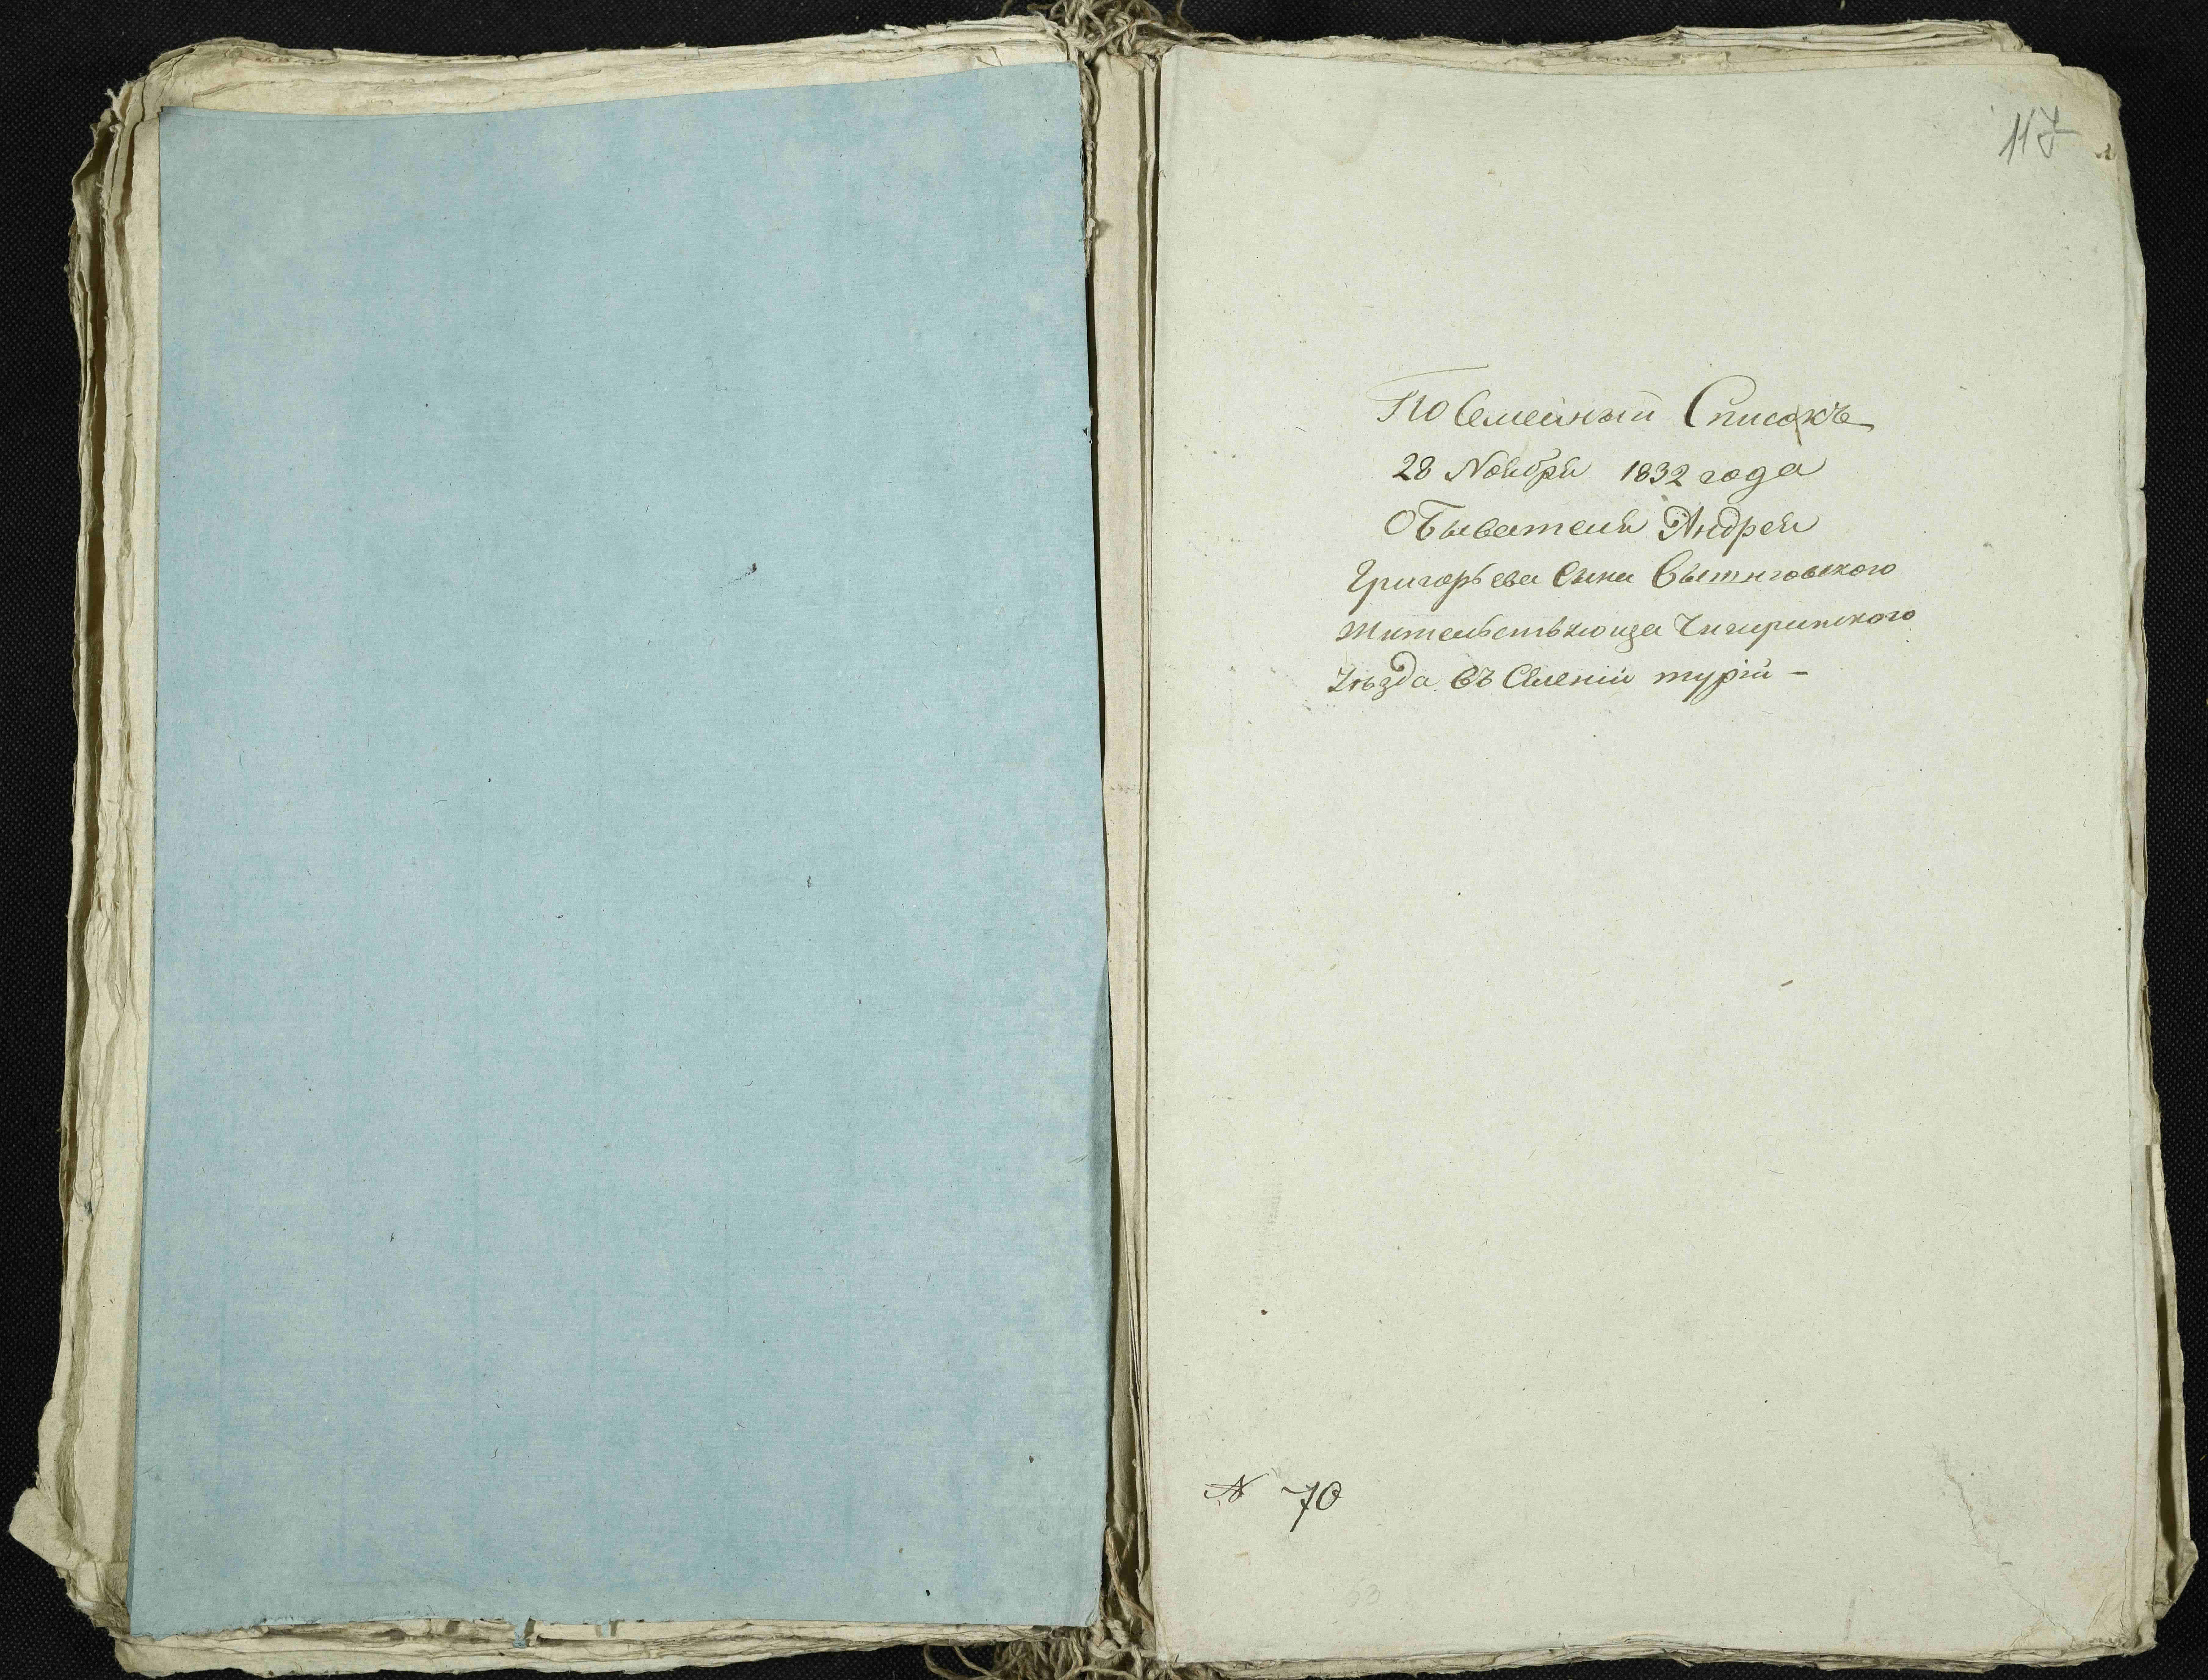 117
ПоСемейный Списокъ
28 Ноября 1832 года
Обывателя Андрея
Григорьева Сына
Жительствующа Чигиринского
Уѣзда въ Селеніи турiи –
N 70